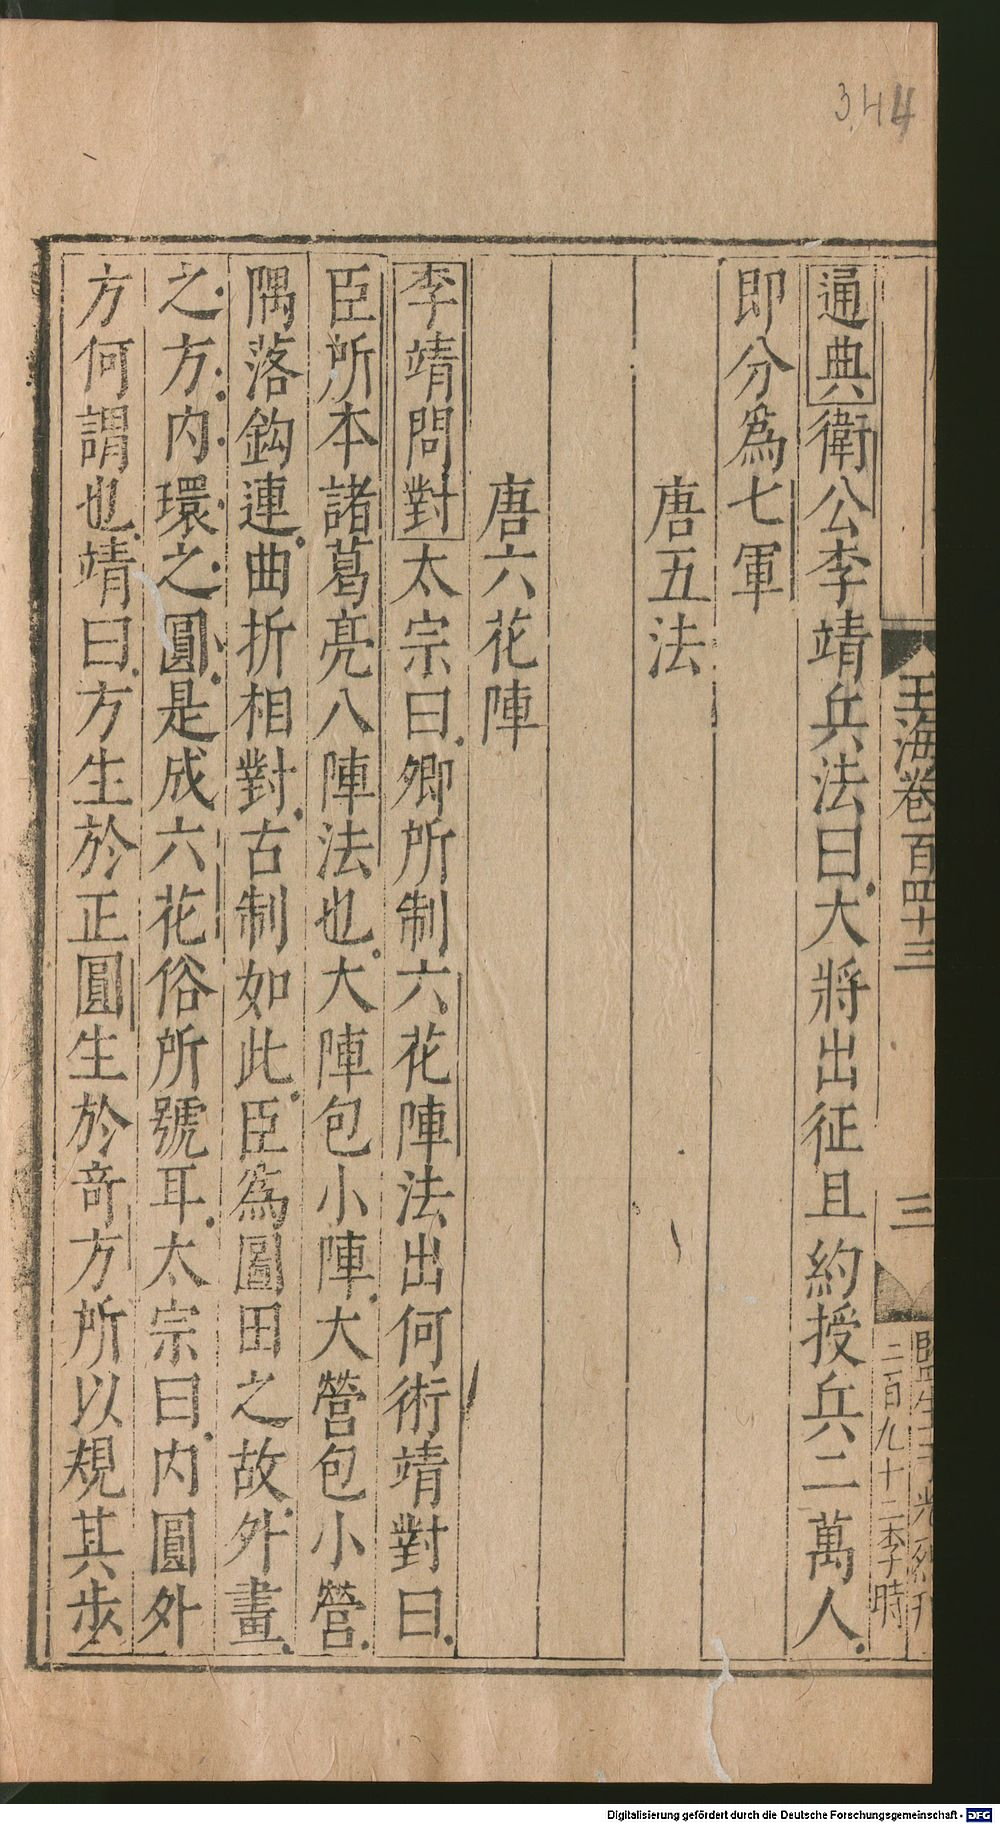 3,44
玉海卷百四十三
三
二百九十二李時
通典衛公李靖兵法曰大將出征且約授兵二萬人
即分爲七軍
唐五法
唐六花陣
李靖問對太宗曰卿所制六花陣法出何術靖對曰
臣所本諸葛亮八陣法也大陣包小陣大營包小營
隅落鈎連曲折相對古制如此臣爲圖田之故外畫
之方内環之圓是成六花俗所號耳太宗曰内圓外
方何謂也靖曰方生於正圓生於奇方所以規其步
Digitalisierung gefördert durch die Deutsche Forschungsgemeinschaft - DFG